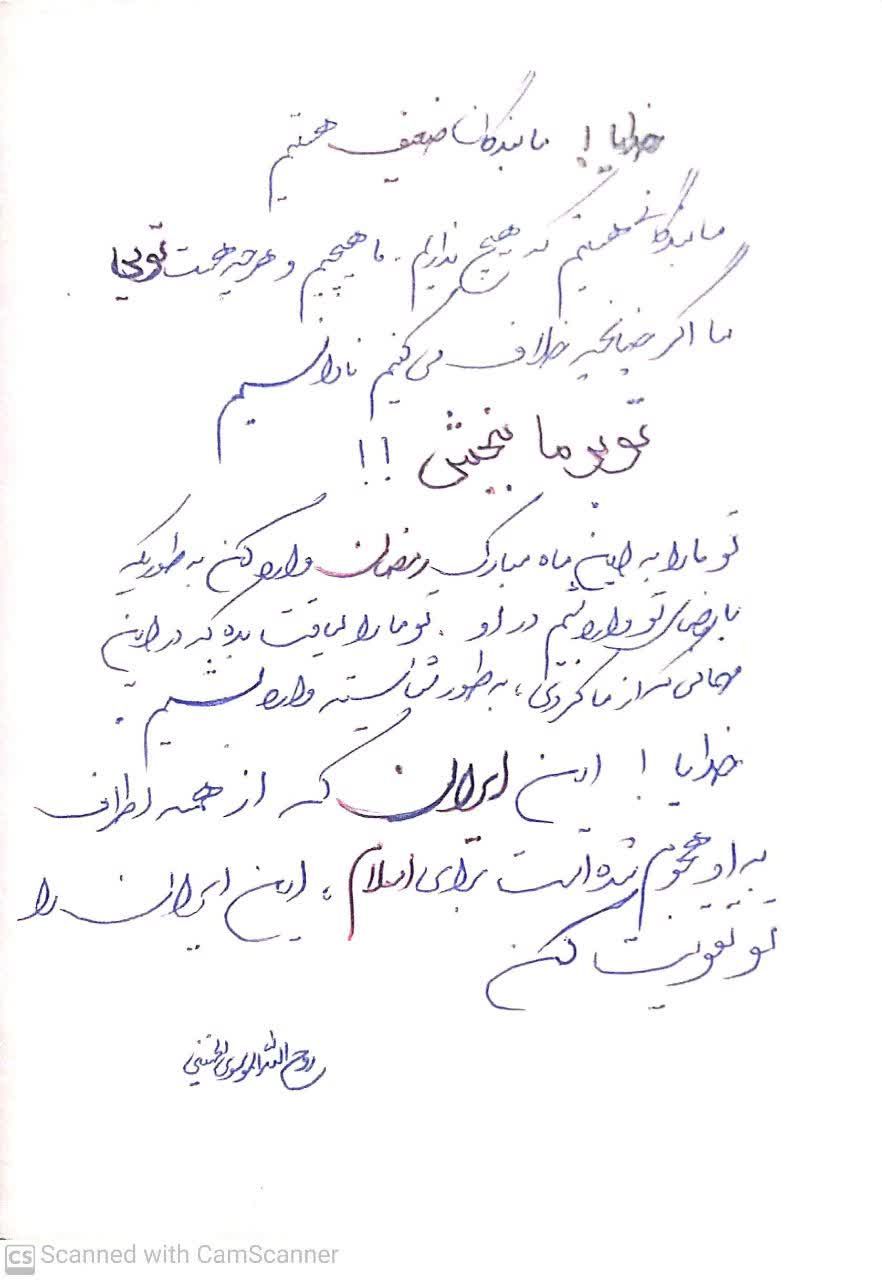 خدایا! ما بندگان ضعیف هستیم
ما بندگانی هستیم که هیچ نداریم. ما هیچیم و هرچه هست تویی
ما اگر چنانچه خلاف می‌کنیم نادانیم
تو بر ما ببخش !!
تو ما را به این ماه مبارک رمضان وارد کن به طوریکه
با رضای تو وارد شیم در او. تو ما را لیاقت بده که در این
مهمانی که از ما کردی، به طور شایسته وارد بشیم.
خدایا! این ایران که از همه اطراف
به او هجوم شده است برای اسلام، این ایران را
تو تقویت کن
روح الله الموسوی الخمینی
CS Scanned with CamScanner